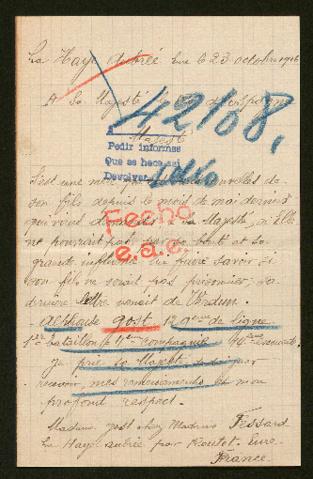 La Haye Aubrée Eure le 23 octobre 1916
A Sa Majesté d'Espagne
42168,
Majesté
Pedir informes
Que se hace asi
Devolver
C'est une mère nouvelles de
son fils depuis le mois de mai dernier
qui vient demander a sa Majesté, si Elle
ne pourrait pas par sa bonté et sa
grande influence lui faire savoir si
son fils ne serait pas prisonnier, sa
dernière lettre venait de Verdun.
Fecho
e.a.e.
Alphonse Gost 129eme de ligne
1er bataillon 4eme compagnie
je prie Sa Majesté de daigner
recevoir, mes remerciements et mon
profond respect.
Madame Gost chez Madame Fessard
La Haye aubrée par Routot. Eure.
France.